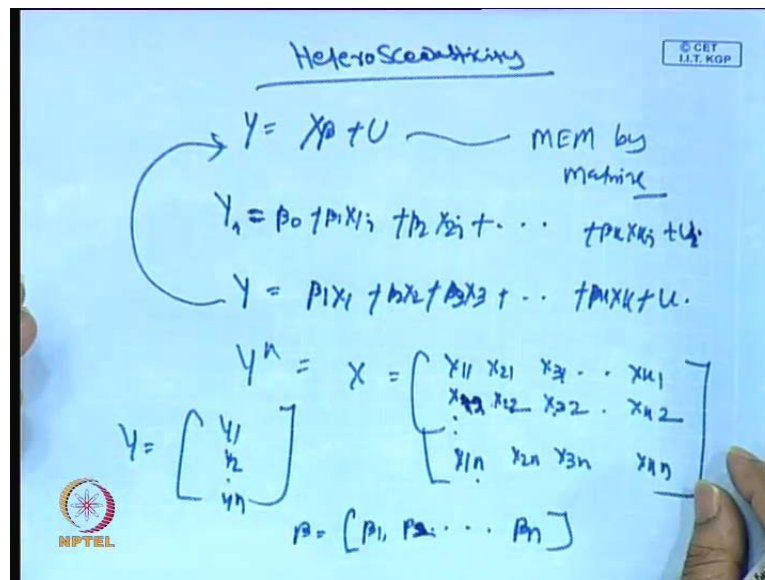 HeteroScedasticity
© CET
I.I.T. KGP
Y = Xβ + U — MEM by
matrix
Y₁ = β0 + β1X1j + β2X2j + · · · + βkXkj + Uj.
Y = β1X1 + β2X2 + β3X3 + · · + βkXk + U.
Yⁿ = X = [ X11 X21 X31 · · Xk1
X22 X32 · Xk2
Y = [ Y1
Y2
·
Yn ]
X1n X2n X3n Xkn ]
β = [β1, β2. · · · βn]
NPTEL